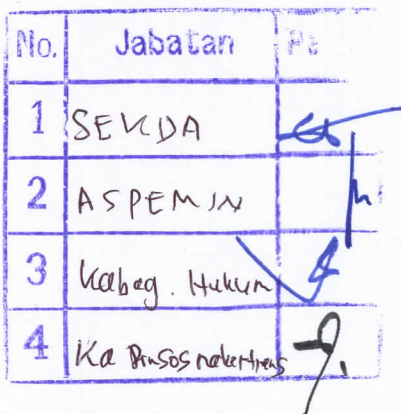 No. Jabatan Pa
1 SEKDA
2 ASPEMIN
3 Kabag. Hukum
4 Ka Dinsosnakertrans